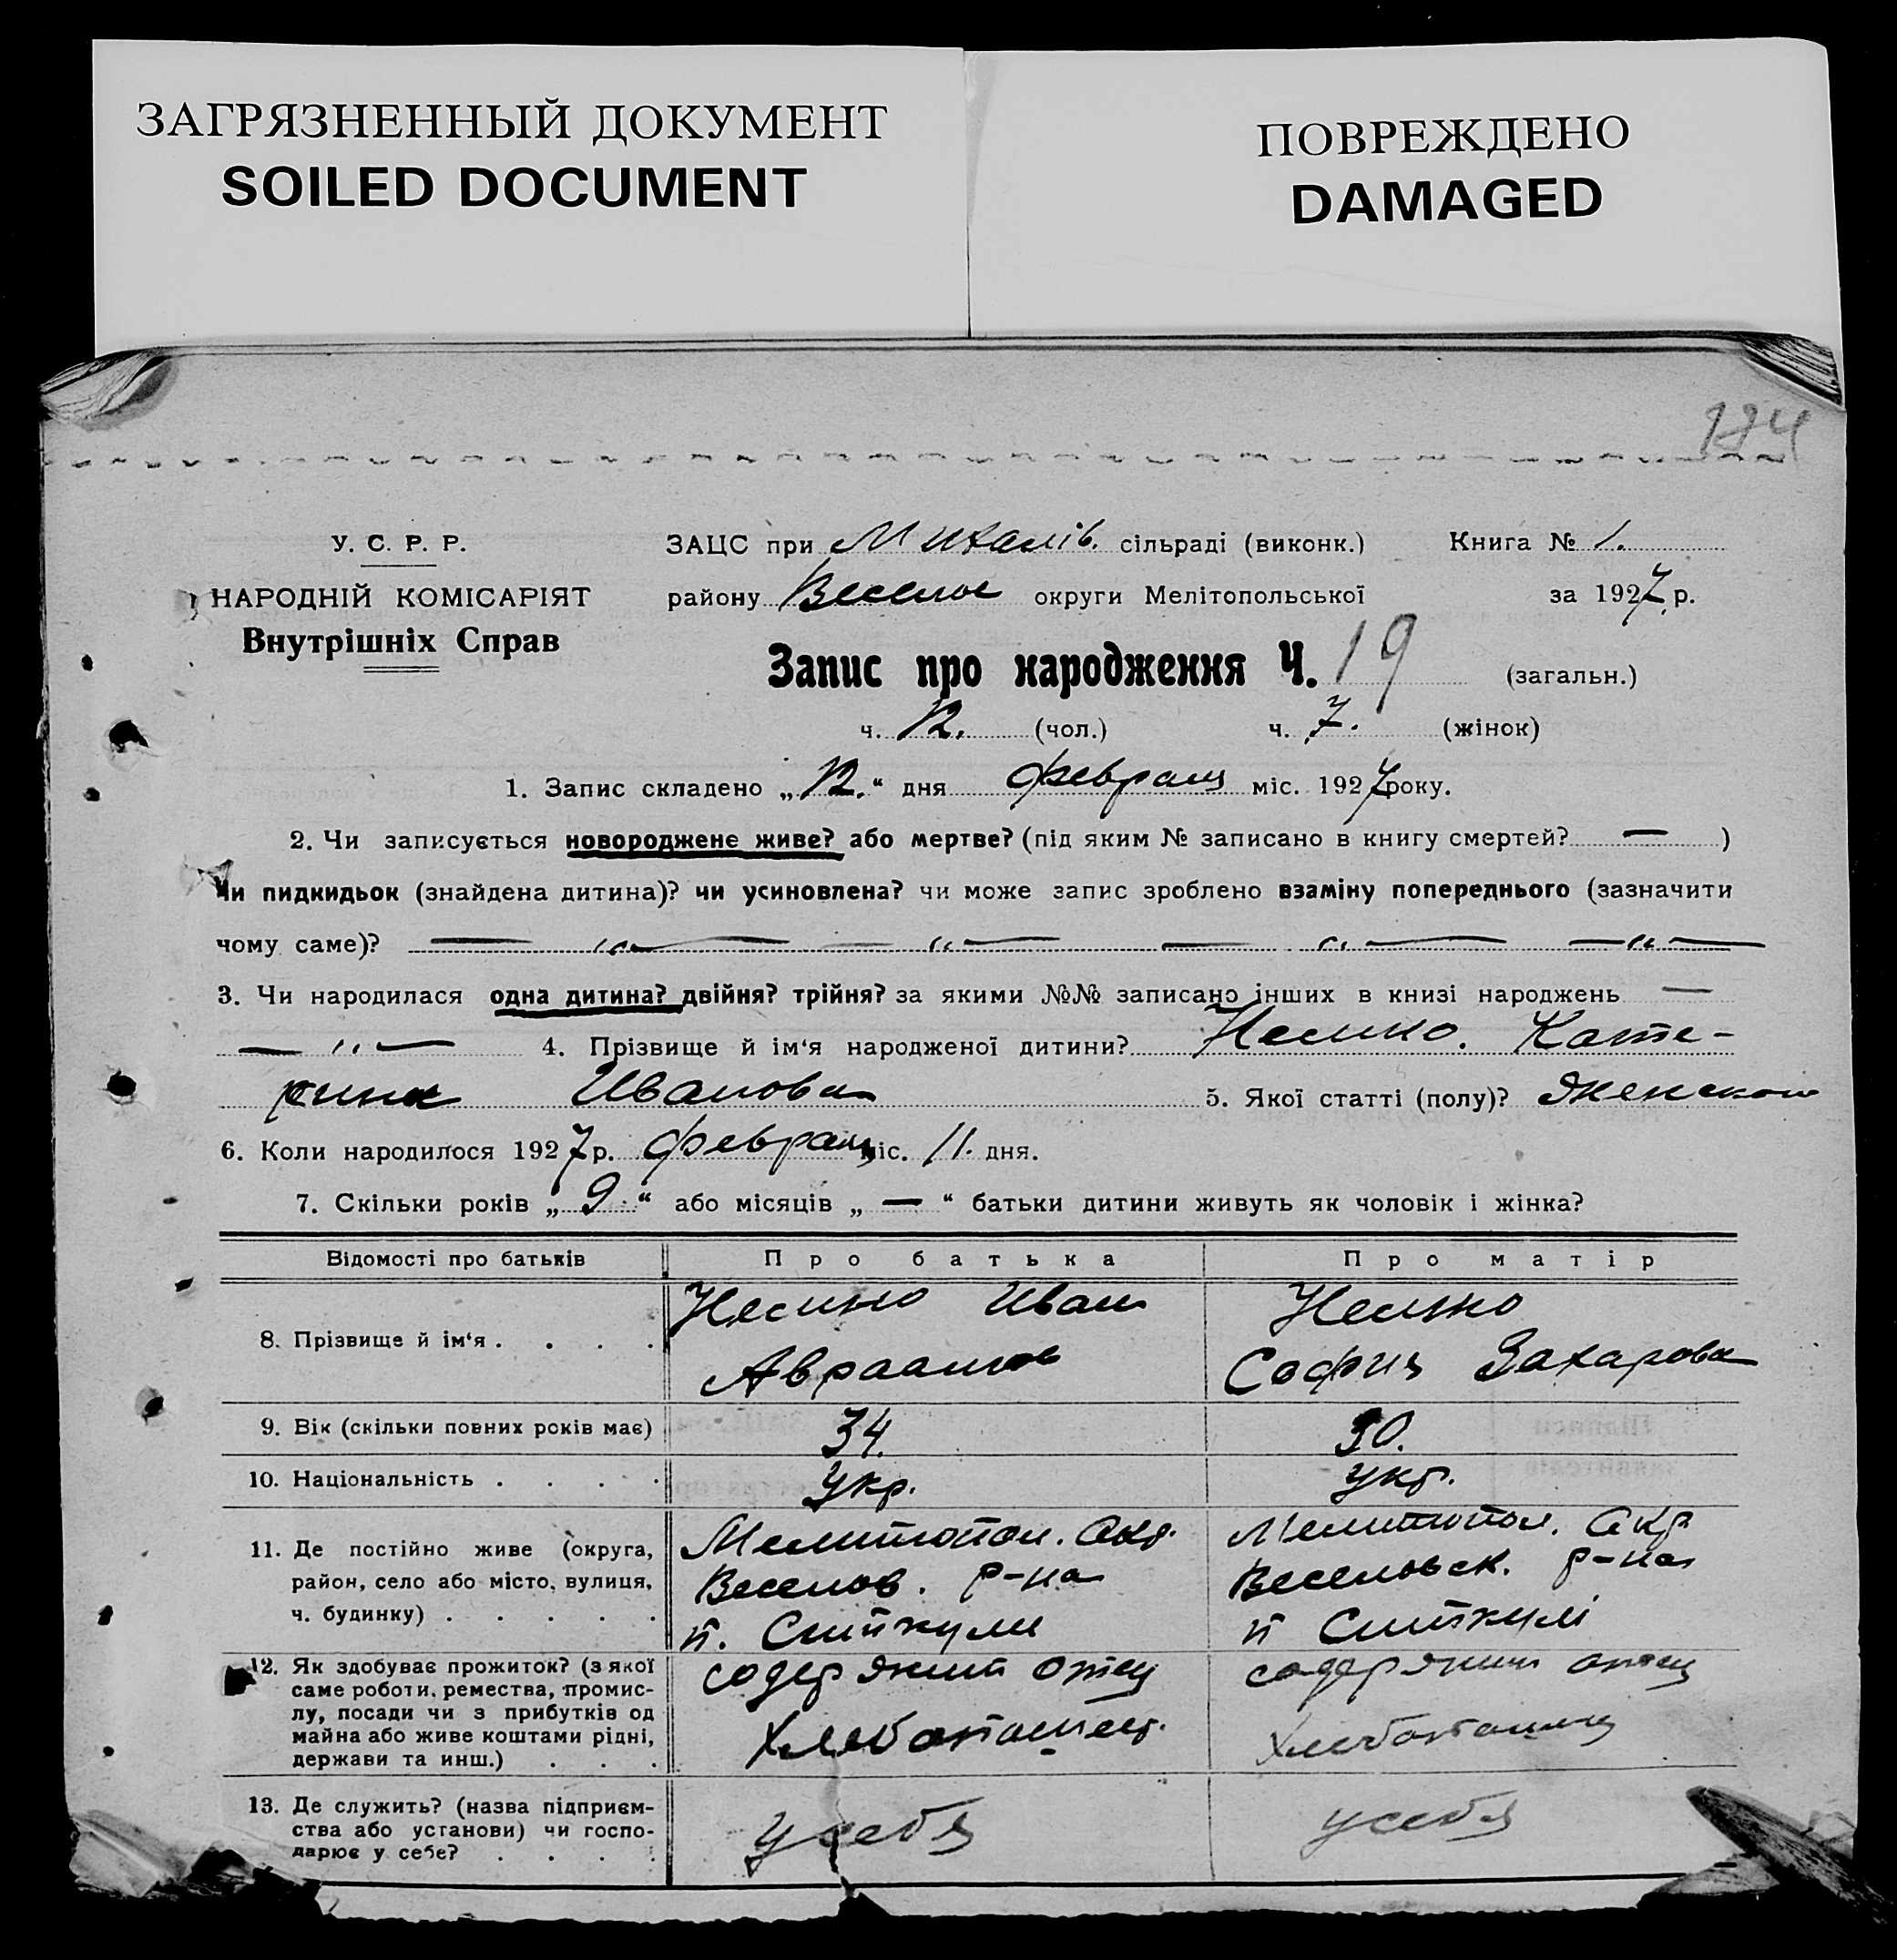 ЗАГРЯЗНЕННЫЙ ДОКУМЕНТ
SOILED DOCUMENT
ПОВРЕЖДЕНО
DAMAGED
174
У. С. Р. Р.
НАРОДНІЙ КОМІСАРІЯТ
Внутрішніх Справ
ЗАЦС при Михалів. сільраді (виконк.) Книга № 1.
району Веселое округи Мелітопольської за 1927 р.
Запис про народження Ч. 19 (загальн.)
ч. 12. (чол.) ч. 7. (жінок)
1. Запис складено „12.“ дня февраля міс. 1927 року.
2. Чи записується новороджене живе? або мертве? (під яким № записано в книгу смертей? — )
Чи пидкидьок (знайдена дитина)? чи усиновлена? чи може запис зроблено взаміну попереднього (зазначити
чому саме)? — „ — — „ — — „ — — „ —
3. Чи народилася одна дитина? двійня? трійня? за якими №№ записано інших в книзі народжень —
— „ — 4. Прізвище й ім‘я народженої дитини? Кате-
рина Иванова 5. Якої статті (полу)? Женского
6. Коли народилося 1927 р. февраля міс. 11. дня.
7. Скільки років „9“ або місяців „ — “ батьки дитини живуть як чоловік і жінка?
Відомості про батьків Про батька Про матір
8. Прізвище й ім‘я . . . . Иван
Авраамов София Захарова
9. Вік (скільки повних років має) 34. 30.
10. Національність . . . . Укр. укр.
11. Де постійно живе (округа, район, село або місто, вулиця, ч. будинку) . . . . .
Мелитопол. Окр. Мелитопол. Окр
Веселов. р-на Веселовск. р-на
п. п
12. Як здобуває прожиток? (з якої саме роботи, ремества, промислу, посади чи з прибутків од майна або живе коштами рідні, держави та инш.) . . .
содержит отец содержит отец
Хлебопашец. Хлебопашец
13. Де служить? (назва підприємства або установи) чи господарює у себе? . . . .
у себя у себя